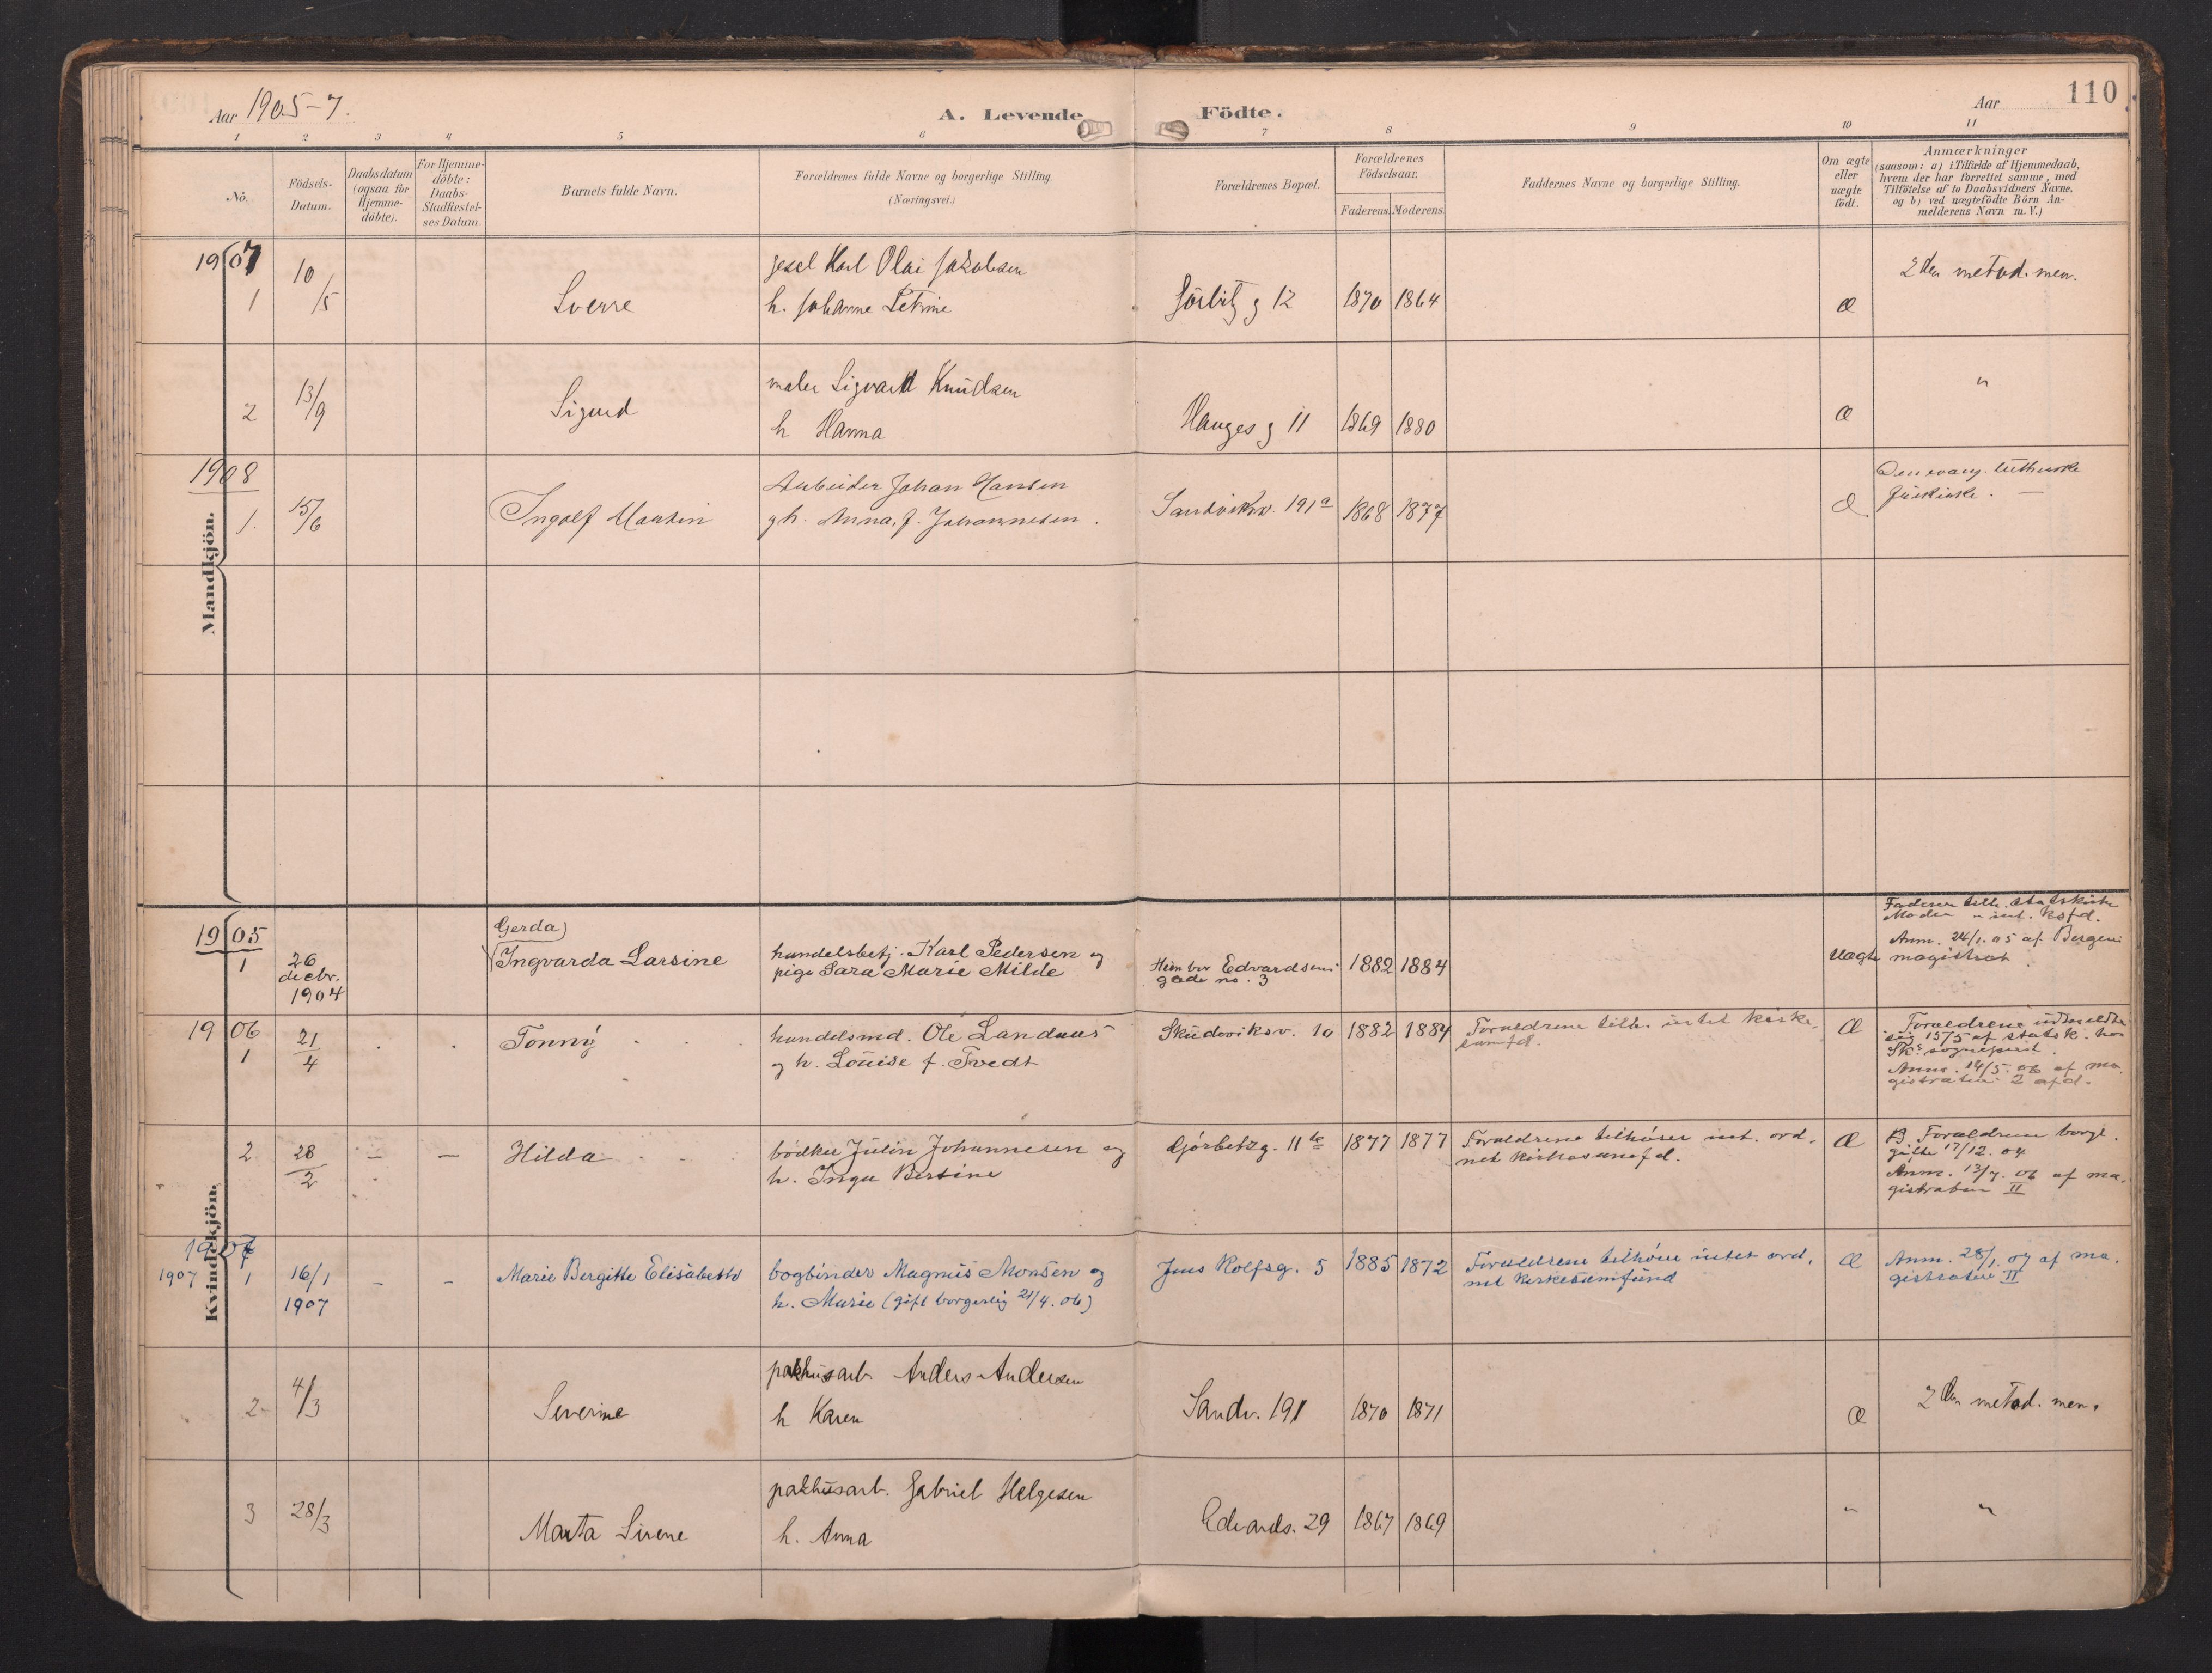 Aar 1905-7.
A. Levende
Födte.
Aar
110
1 2 3 4 5 6 7 8 9 10 11
No.
Födsels-
Datum.
Daabsdatum
(ogsaa for
Hjemme-
döbte).
For Hjemme-
döbte:
Daabs-
Stadfestel-
ses Datum.
Barnets fulde Navn.
Forældrenes fulde Navne og borgerlige Stilling
(Næringsvei.)
Forældrenes Bopæl.
Forældrenes
Födselsaar.
Faderens. Moderens.
Faddernes Navne og borgerlige Stilling.
Om ægte
eller
uægte
födt.
Anmærkninger
(saasom: a) i Tilfælde af Hjemmedaab,
hvem der har forrettet samme, med
Tilföielse af to Daabsvidners Navne,
og b) ved uægtefödte Börn An-
melderens Navn m. V.)
Mandkjön.
1907
1 10/5 Sverre
Karl Olai Jakobsen
h. Johanne Petrine
g 12 1870 1864 Æ
2den metod. men.
2 13/9 Sigurd
maler Sigvard Knudsen
h Hanna
Hauges g 11 1869 1880 Æ
"
1908
1. 15/6 Ingolf Martin
Arbeider Johan Hansen
gh. Anna, f. Johannesen.
Sandviksv. 191a 1868 1877
Den evang. lutherske
frikirke. —
Kvindekjön.
1905
1 26
decbr.
1904
Gerda)
Ingvarda Larsine
handelsbetj. Karl Pedersen og
pige Sara Marie Milde
Edvardsens
gade no. 3
1882 1884
Uægte
Faderen tilh. statskirke
Moder " int. ksfd.
Anm. 24/1.05 af Bergens
magistrat.
1906
1 21/4 Tonny
handelsmd. Ole Landaas
og h. Louise f. Tvedt
Skudeviksv. 10 1882 1884
Forældrene tilh. intet kirke-
samfd.
Æ
Forældrene udmeldte
sig 15/5 af statsk. hos
Sks sogneprest.
Anm. 14/5.06 af ma-
gistraten 2 afd.
2 28/2 — — Hilda
bødker Julin Johannesen og
h. Inga Bertine
Gjørbetzg. 11 1877 1877
Forældrene tilhører int. ord-
net kirkesamfd.
Æ
Forældrene borgl.
gifte 17/12.04
Anm. 13/7.06 af ma-
gistraten II
1907
1907 1 16/1
1907
— — Marie Bergitte Elisabeth
bogbinder Magnus Monsen og
h. Marie (gift borgerlig 21/4.06)
Jens Rolfsg. 5 1885 1872
Forældrene tilhører intet ord-
net kirkesamfund
Æ
Anm. 28/1.07 af ma-
gistraten II
2 4/3 Severine
pakhusarb. Anders Andersen
h Karen
Sandv. 191 1870 1871 Æ
2den metod. men.
3 28/3 Marta Sirene
pakhusarb. Gabriel Helgesen
h. Anna
Edvards. 29 1867 1869 " "